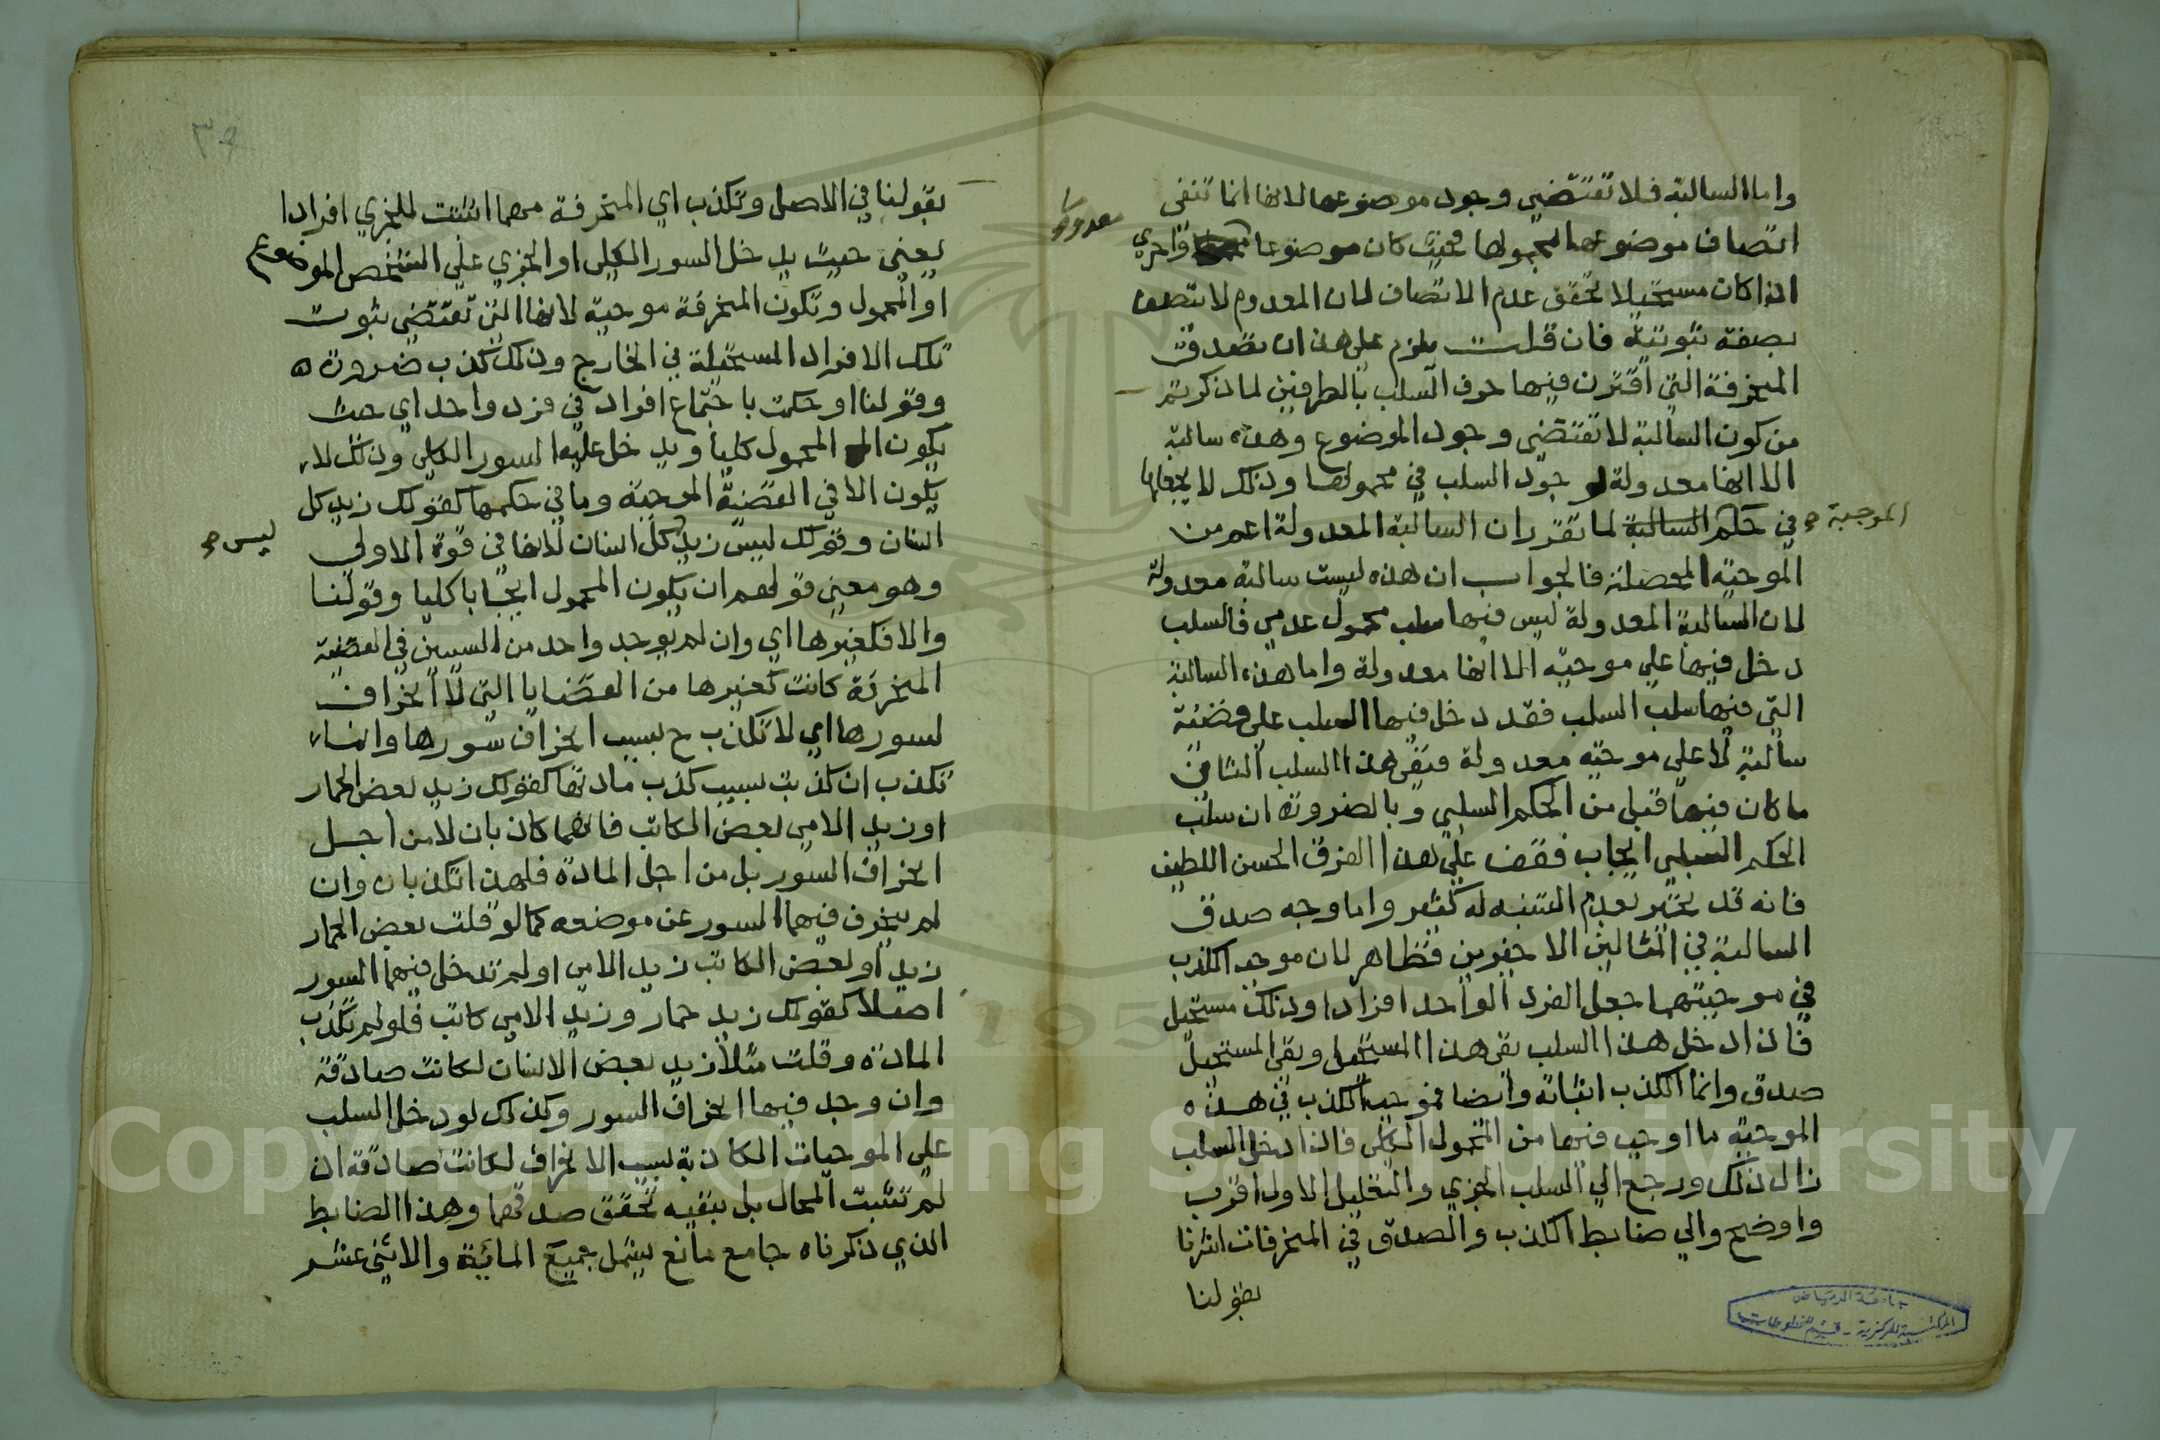 واما السالبة فلا تقتضي وجود موضوعها لانها انما تنفي
اتصاف موضوعها بمحمولها فحيث كان موضوعا واحري
معدوما
اذا كان مستحيلا تحقق عدم الاتصاف لان المعدوم لا يتصف
بصفة ثبوتية فان قلت يلزم على هذا ان تصدق
المنحرفة التي اقترن فيها حرف السلب بالطرفين لما ذكرتم
من كون السالبة لا تقتضي وجود الموضوع وهذه سالبة
الا انها معدولة لوجود السلب في محمولها وذلك لا يجعلها
في حكم السالبة لما تقرر ان السالبة المعدولة اعم من
الموجبة
الموجبة المحصلة فالجواب ان هذه ليست سالبة معدولة
لان السالبة المعدولة ليس فيها سلب محمول عدمي فالسلب
دخل فيها على موجبة الا انها معدولة واما هذه السالبة
التي فيها سلب السلب فقد دخل فيها السلب على قضية
سالبة لا على موجبة معدولة فنفى هذا السلب الثاني
ما كان فيها قبل من الحكم السلبي وبالضرورة ان سلب
الحكم السلبي ايجاب فقف على هذا الفرق الحسن اللطيف
فانه قد يغتر بعدم التنبه له كثير واما وجه صدق
السالبة في المثالين الاخيرين فظاهر لان موجب الكذب
في موجبتهما جعل الفرد الواحد افرادا وذلك مستحيل
فاذا دخل هذا السلب نفى هذا المستحيل ونفي المستحيل
صدق وانما الكذب اثباته وايضا فموجب الكذب في هذه
الموجبة ما اوجب فيها من المحمول الكلي فاذا دخل السلب
زال ذلك ورجع الي السلب الجزي والتعليل الاول اقرب
واوضح والي ضابط الكذب والصدق في المنحرفات اشرنا
بقولنا
جامعة الرياض
المكتبة المركزية - قسم المخطوطات
بقولنا في الاصل وتكذب اي المنحرفة مهما اثبتت للجزي افرادا
يعني حيث يدخل السور الكلي او الجزي على الشخص الموضوع
او المحمول وتكون المنحرفة موجبة لانها التي تقتضي ثبوت
تلك الافراد المستحيلة في الخارج وذلك كذب ضرورة
وقولنا او حكمت باجتماع افراد في فرد واحد اي حيث
يكون المحمول كليا ويدخل عليه السور الكلي وذلك لا
يكون الا في القضية الموجبة وما في حكمها كقولك زيد كل
انسان وقولك ليس زيد كل انسان لانها في قوة الاولي
ليس
وهو معني قولهم ان يكون المحمول ايجابا كليا وقولنا
والا فكغيرها اي وان لم يوجد واحد من السببين في القضية
المنحرفة كانت كغيرها من القضايا التي لا انحراف
لسورها اي لا تكذب ح بسبب انحراف سورها وانما
تكذب ان كذبت بسبب كذب مادتها كقولك زيد بعض الحمار
او زيد الامي بعض الكاتب فانهما كاذبان لا من اجل
انحراف السور بل من اجل المادة فلهذا تكذبان وان
لم ينحرف فيهما السور عن موضعه كما لو قلت بعض الحمار
زيد او بعض الكاتب زيد الامي او لم تدخل فيهما السور
اصلا كقولك زيد حمار وزيد الامي كاتب فلو لم تكذب
المادة وقلت مثلا زيد بعض الانسان لكانت صادقة
وان وجد فيها انحراف السور وكذلك لو دخل السلب
على الموجبات الكاذبة بسبب الانحراف لكانت صادقة اذ
لم تثبت المحال بل بنفيه تحقق صدقها وهذا الضابط
الذي ذكرناه جامع مانع يشمل جميع المائية والاثني عشر
Copyright © King Saud University
1957